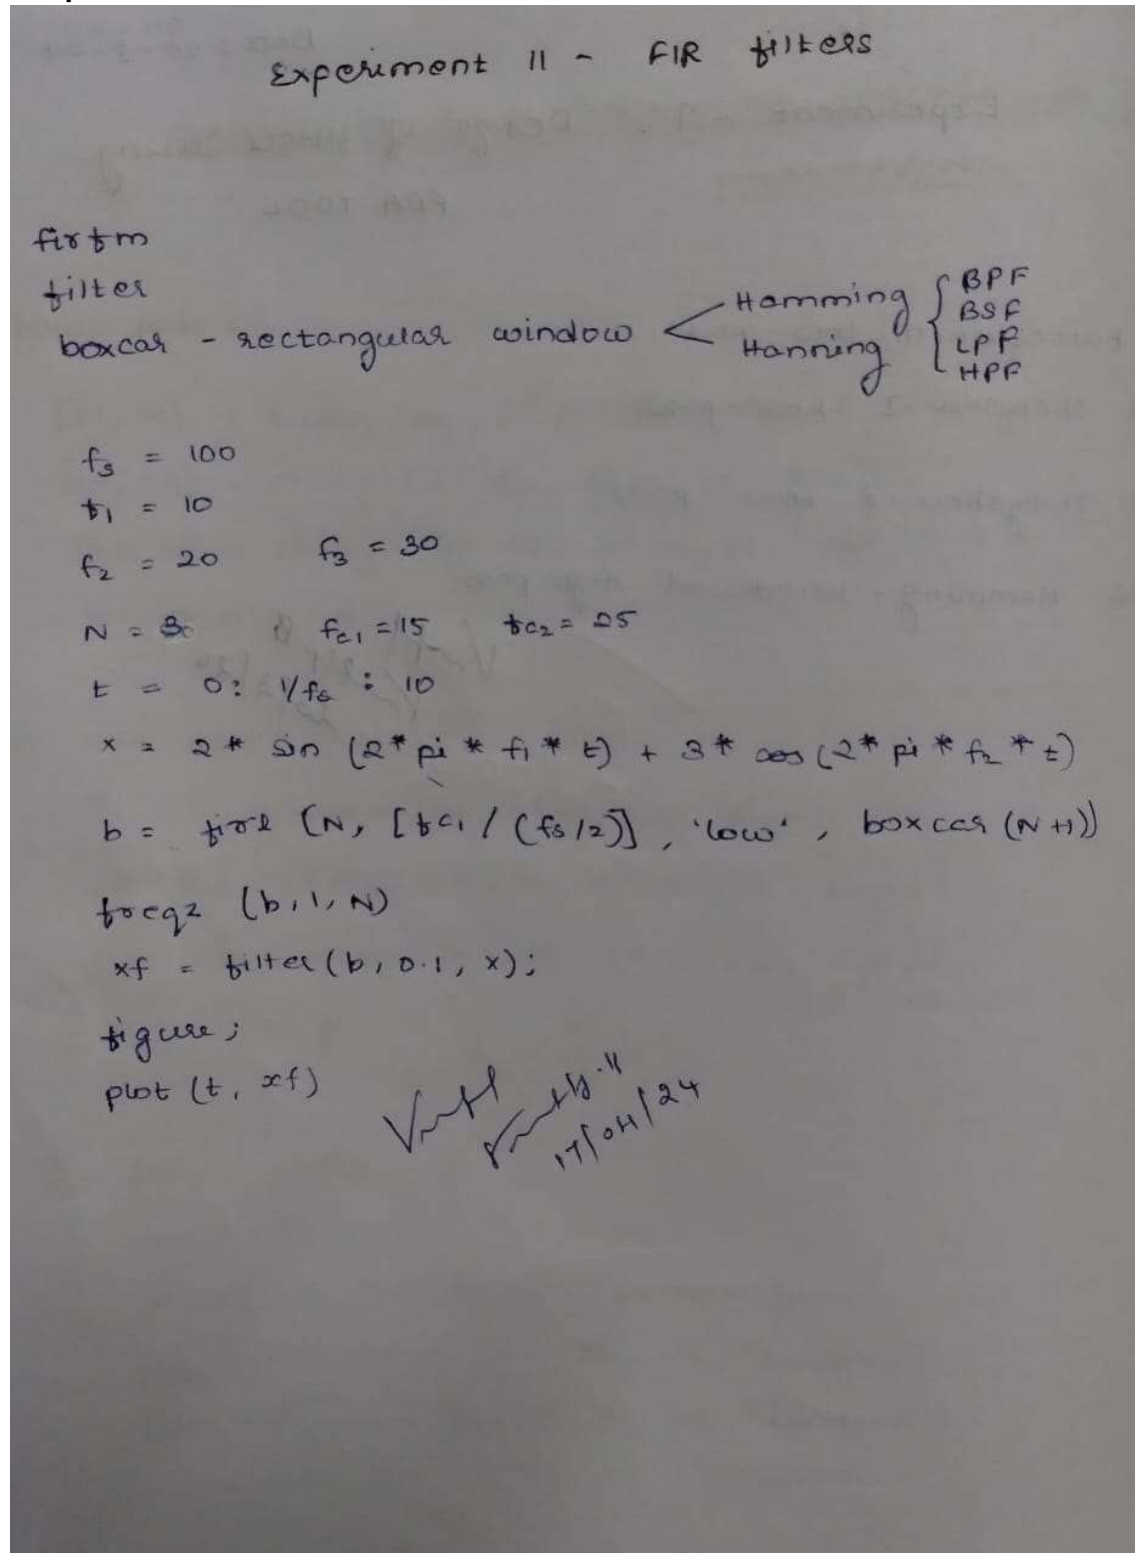 Experiment 11 - FIR filters
firfm
filter
boxcar - rectangular window < Hamming Hanning { BPF BSF LPF HPF
fs = 100
f1 = 10
f2 = 20 f3 = 30
N = 30 fc1 = 15 fc2 = 25
t = 0: 1/fs : 10
x = 2 * sin (2 * pi * f1 * t) + 3 * cos (2 * pi * f2 * t)
b = fir1 (N, [fc1 / (fs/2)], 'low', boxcar (N+1))
freqz (b, 1, N)
xf = filter (b, 0.1, x);
figure;
plot (t, xf)
17/04/24